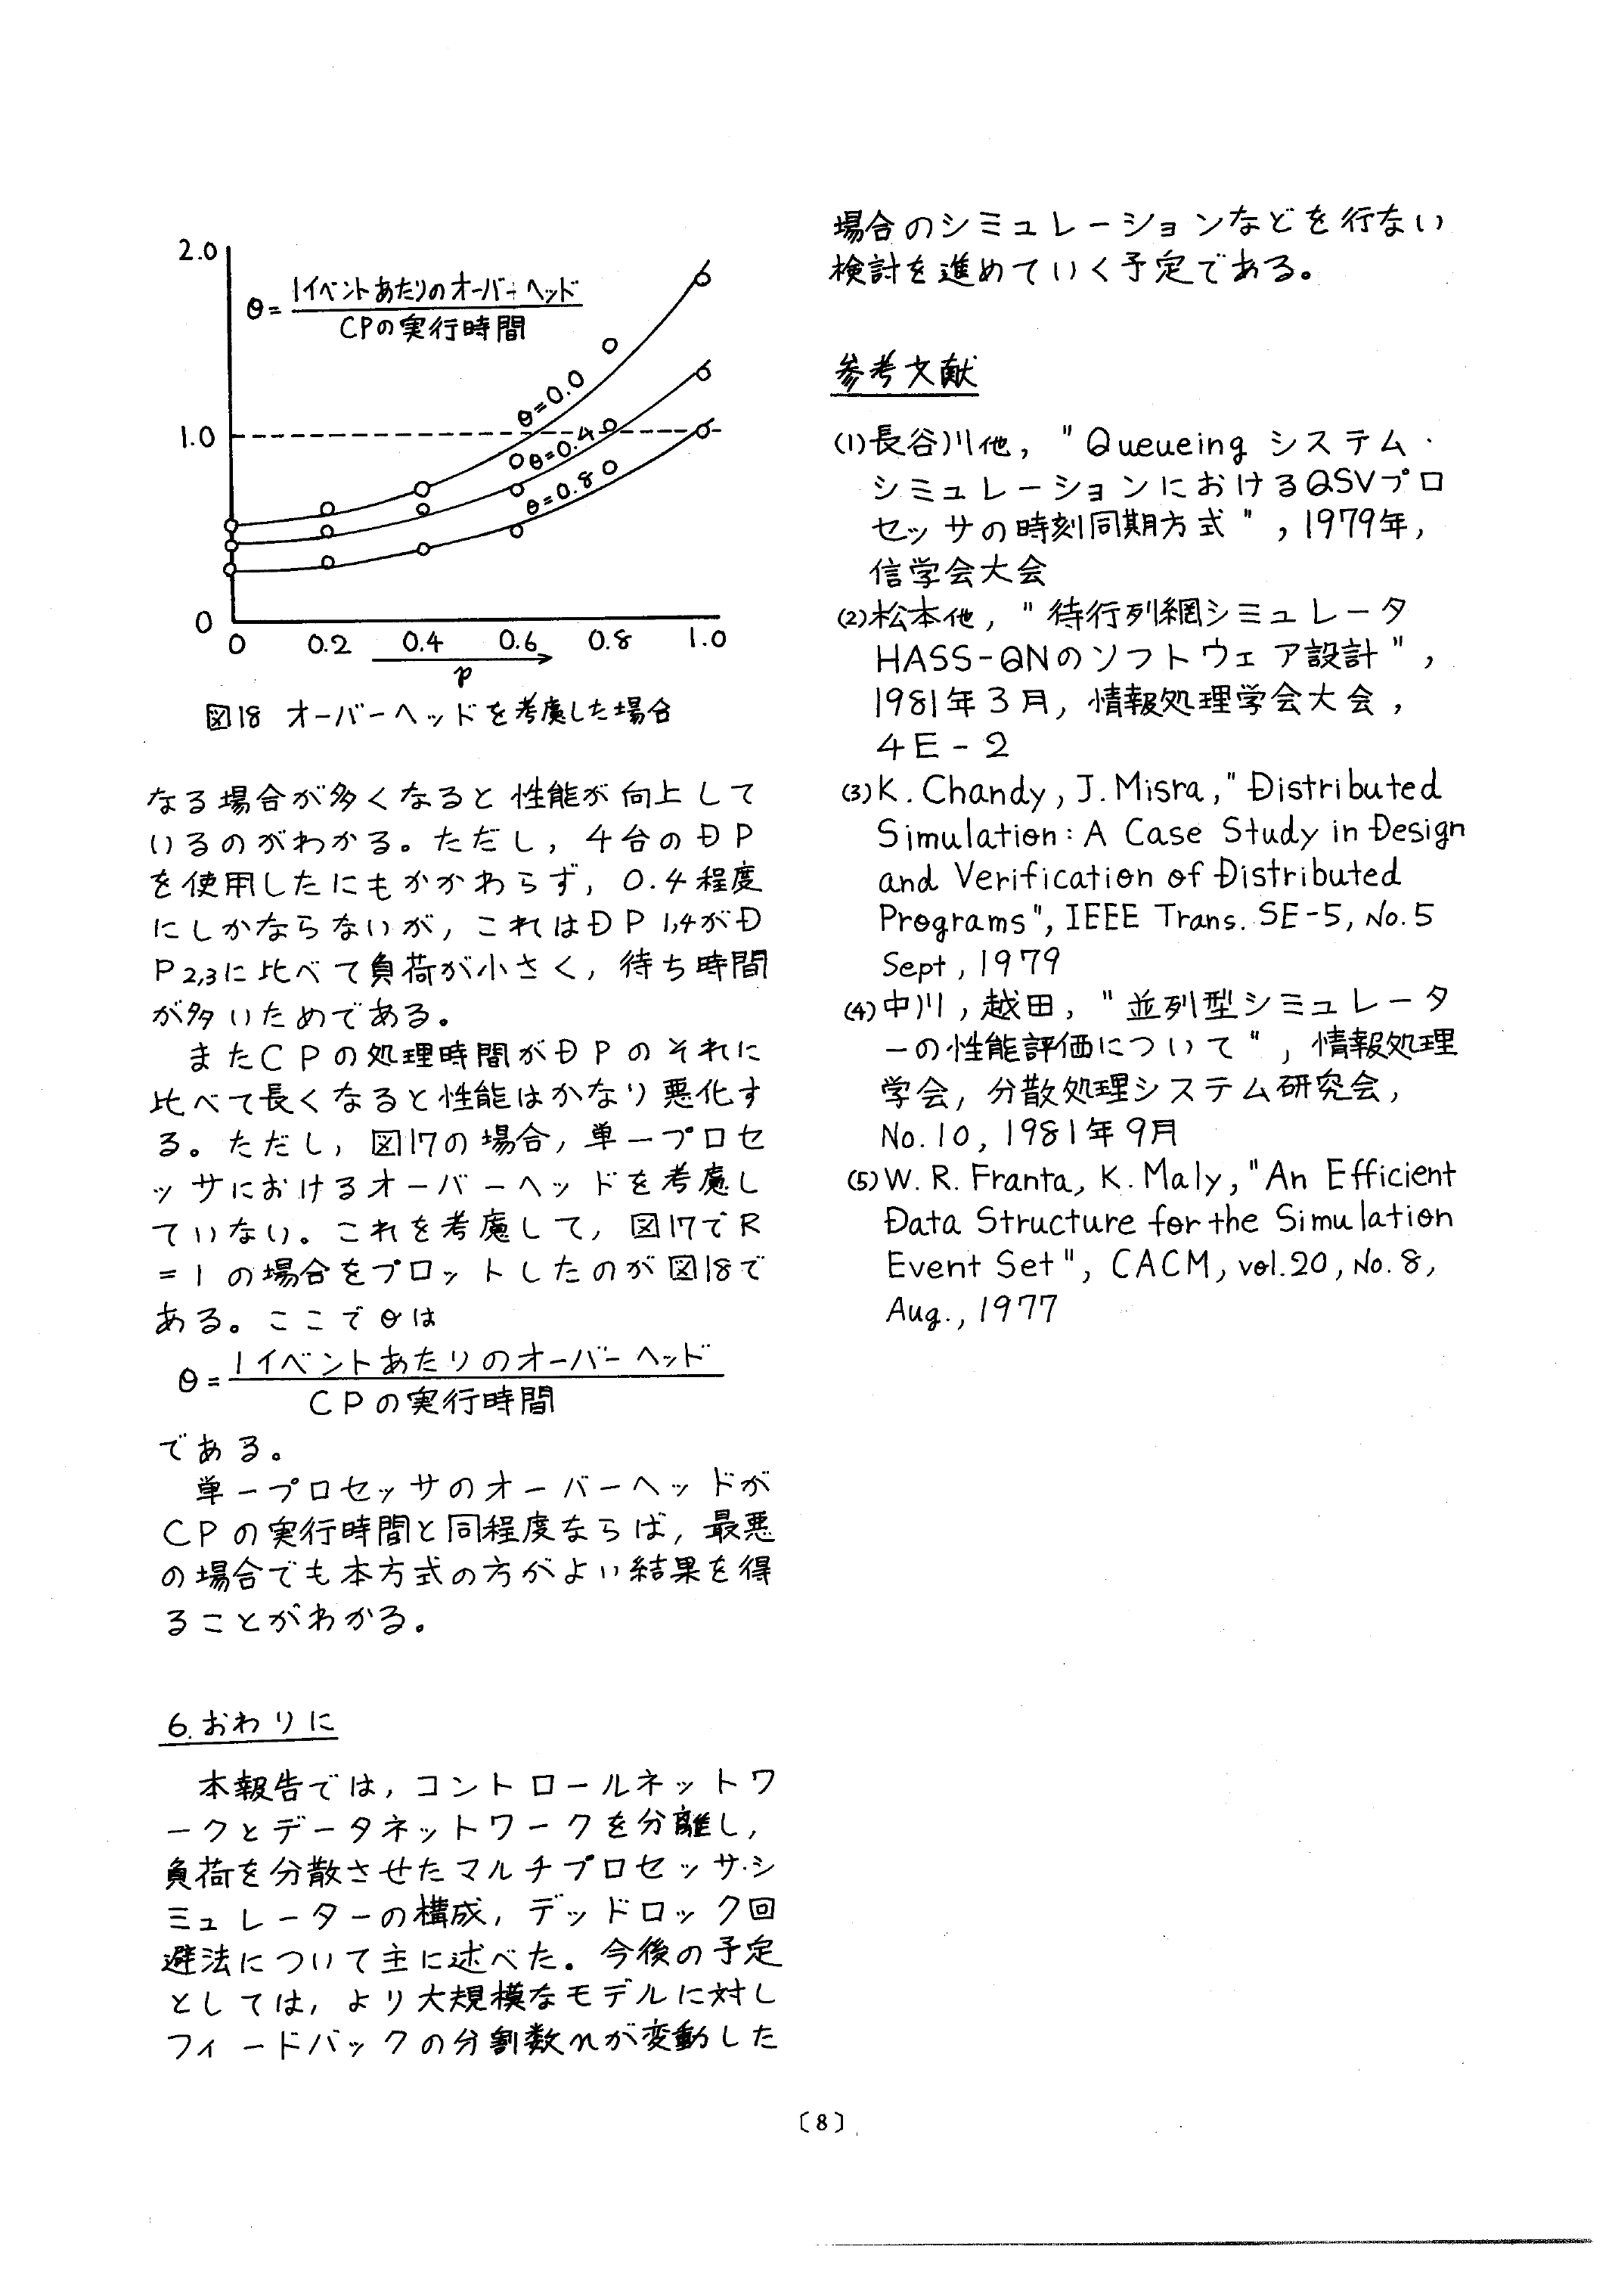 2.0
θ= 1イベントあたりのオーバーヘッド
CPの実行時間
θ=0.0
1.0
θ=0.4
θ=0.8
0
0 0.2 0.4 0.6 0.8 1.0
p
図18 オーバーヘッドを考慮した場合
なる場合が多くなると性能が向上して
いるのがわかる。ただし,4台のDP
を使用したにもかかわらず,0.4程度
にしかならないが,これはDP1,4がD
P2,3に比べて負荷が小さく,待ち時間
が多いためである。
またCPの処理時間がDPのそれに
比べて長くなると性能はかなり悪化す
る。ただし,図17の場合,単一プロセ
ッサにおけるオーバーヘッドを考慮し
ていない。これを考慮して,図17でR
=1の場合をプロットしたのが図18で
ある。ここでθは
θ= 1イベントあたりのオーバーヘッド
CPの実行時間
である。
単一プロセッサのオーバーヘッドが
CPの実行時間と同程度ならば,最悪
の場合でも本方式の方がよい結果を得
ることがわかる。
6.おわりに
本報告では,コントロールネットワ
ークとデータネットワークを分離し,
負荷を分散させたマルチプロセッサ・シ
ミュレーターの構成,デッドロック回
避法について主に述べた。今後の予定
としては,より大規模なモデルに対し
フィードバックの分割数nが変動した
場合のシミュレーションなどを行ない
検討を進めていく予定である。
参考文献
(1)長谷川他,"Queueing システム・
シミュレーションにおけるQSVプロ
セッサの時刻同期方式",1979年,
信学会大会
(2)松本他,"待行列網シミュレータ
HASS-QNのソフトウェア設計",
1981年3月,情報処理学会大会,
4E-2
(3)K. Chandy, J. Misra, "Distributed
Simulation: A Case Study in Design
and Verification of Distributed
Programs", IEEE Trans. SE-5, No.5
Sept, 1979
(4)中川,越田,"並列型シミュレータ
ーの性能評価について",情報処理
学会,分散処理システム研究会,
No.10, 1981年9月
(5)W. R. Franta, K. Maly, "An Efficient
Data Structure for the Simulation
Event Set", CACM, vol.20, No.8,
Aug., 1977
〔8〕